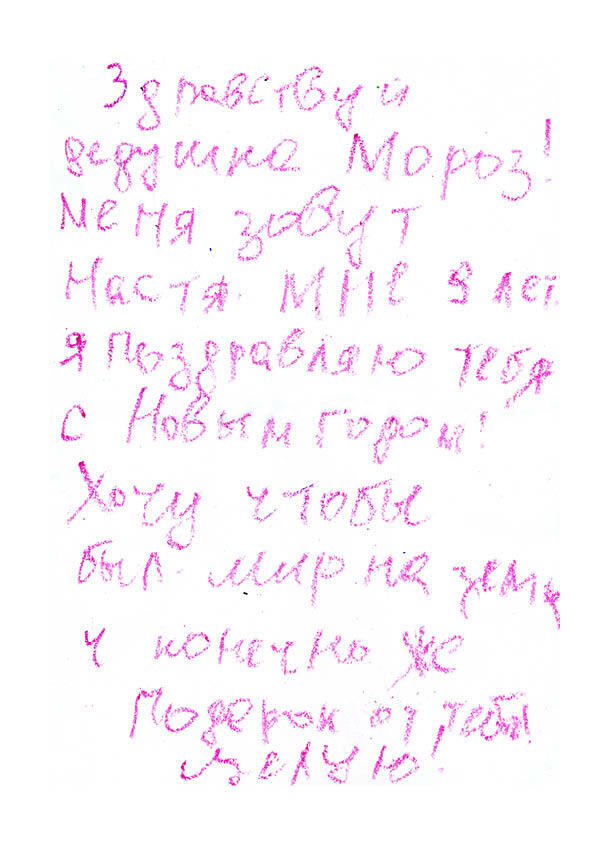 Здравствуй
дедушка Мороз!
Меня зовут
Настя. Мне 8 лет.
я поздравляю тебя
с Новым годом!
Хочу чтобы
был мир на земл
и конечно же
Подерок от тебя!
целую!